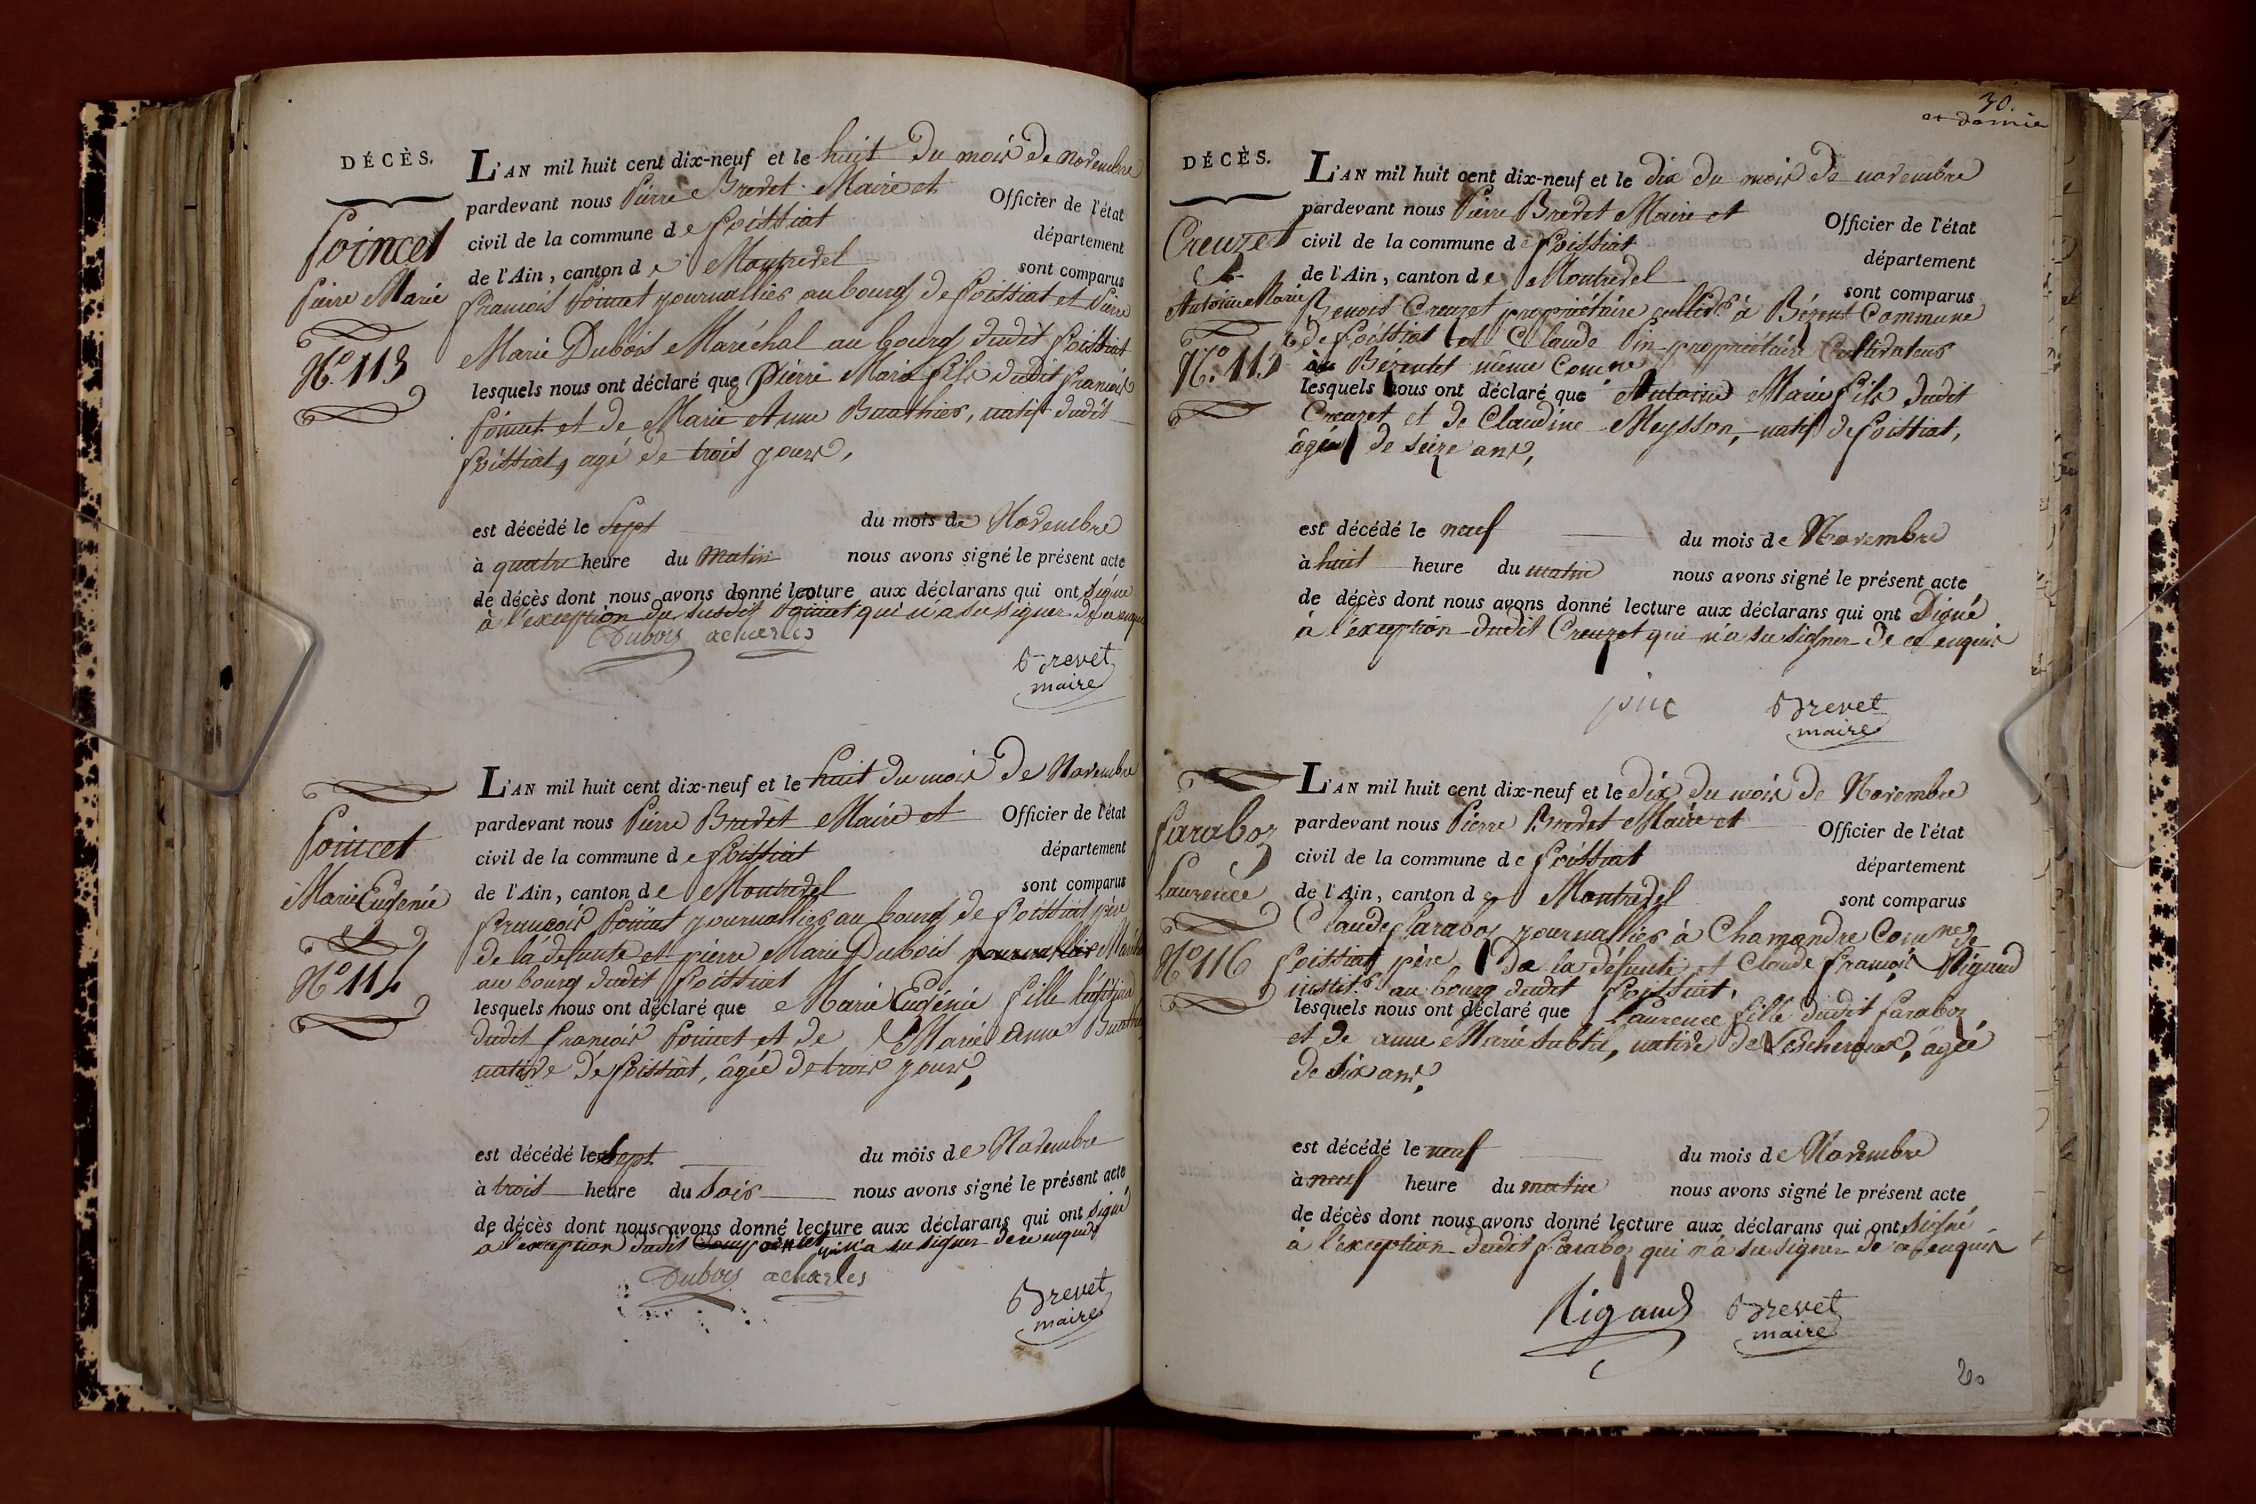 DÉCÈS.
Poincet
Pierre Marie
N.º 113
L'AN mil huit cent dix-neuf et le huit du mois de novembre
pardevant nous Pierre Brevet Maire et Officier de l'état
civil de la commune de Foissiat département
de l'Ain, canton de Montrevel sont comparus
francois Poincet journallier au bourg de foissiat et Pierre
Marie Dubois Maréchal au bourg dudit foissiat
lesquels nous ont déclaré que Pierre Marie fils dudit françois
Poincet et de Marie Anne Buathier, natif dudit
foissiat, agé de trois jours,
est décédé le Sept du mois de Novembre
à quatre heure du matin nous avons signé le présent acte
de décès dont nous avons donné lecture aux déclarans qui ont signé
à l'exception du susdit Poincet qui n'a su signer de ce enquis
Dubois acharles
Brevet
maire
Poincet
Marie Eugénie
N.º 114
L'AN mil huit cent dix-neuf et le huit du mois de Novembre
pardevant nous Pierre Brevet Maire et Officier de l'état
civil de la commune de foissiat département
de l'Ain, canton de Montrevel sont comparus
françois Poincet journallier au bourg de foissiat père
de la défunte et pierre Marie Dubois
au bourg dudit foissiat
lesquels nous ont déclaré que Marie Eugénie fille légitime
dudit françois Poincet et de Marie Anne
native de foissiat, âgée de trois jours,
est décédé le Sept du mois de Novembre
à trois heure du Soir nous avons signé le présent acte
de décès dont nous avons donné lecture aux déclarans qui ont signé
à l'exception dudit Poincet qui n'a su signer de ce enquis
Dubois acharles
Brevet
maire
30.
et demie
DÉCÈS.
Creuzet
Antoine Marie
N.º 115
L'AN mil huit cent dix-neuf et le dix du mois de novembre
pardevant nous Pierre Brevet Maire et Officier de l'état
civil de la commune de foissiat département
de l'Ain, canton de Montrevel sont comparus
Benoit Creuzet propriétaire à Bézentet Commune
de foissiat et Claude Pin propriétaire Cultivateur
à Bézentet même Comune
lesquels nous ont déclaré que Antoine Marie fils dudit
Creuzet et de Claudine Meysson, natif de foissiat,
âgé de seize ans,
est décédé le neuf du mois de Novembre
à huit heure du matin nous avons signé le présent acte
de décès dont nous avons donné lecture aux déclarans qui ont Signé
à l'exception dudit Creuzet qui n'a su signer de ce enquis
pin
Brevet
maire
Faraboz
Laurence
N.º 116
L'AN mil huit cent dix-neuf et le dix du mois de Novembre
pardevant nous Pierre Brevet Maire et Officier de l'état
civil de la commune de foissiat département
de l'Ain, canton de Montrevel sont comparus
Claude faraboz journallier à Chamandre Comne de
foissiat père de la défunte et Claude françois Rigaud
institr au bourg dudit foissiat,
lesquels nous ont déclaré que Laurence fille dudit faraboz
et de anne Marie Subtil, native de Lescheroux, âgée
de Six ans,
est décédé le neuf du mois de Novembre
à neuf heure du matin nous avons signé le présent acte
de décès dont nous avons donné lecture aux déclarans qui ont signé
à l'exception dudit faraboz qui n'a su signer de ce enquis
Rigaud
Brevet
maire